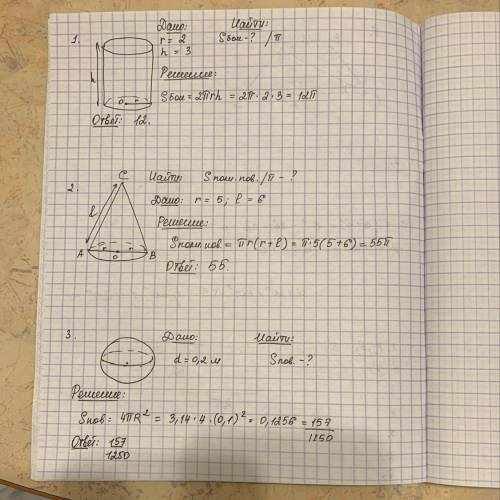 1. Дано: Найти:
r = 2 Sбок - ? /π
h = 3
h
Решение:
o r
Sбок = 2πrh = 2π · 2 · 3 = 12π
Ответ: 12.
2. Найти: Sполн.пов. /π - ?
C
Дано: r = 5; l = 6
l
Решение:
Sполн.пов = πr(r+l) = π·5(5+6) = 55π
A r r B
o
Ответ: 55.
3. Дано: Найти:
d = 0,2 м Sпов. - ?
Решение:
Sпов = 4πR² = 3,14 · 4 · (0,1)² = 0,1256 = 157/1250
Ответ: 157/1250